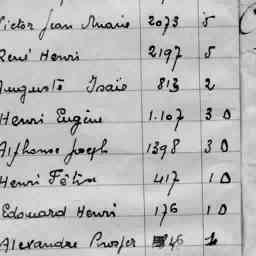 Victor Jean Marie 2073 5
René Henri 2197 5
Auguste Isaïe 813 2
Henri Eugène 1.107 3 0
Alphonse Joseph 1398 3 0
Henri Félix 417 1 0
Edouard Henri 176 1 0
Alexandre Prosper 46